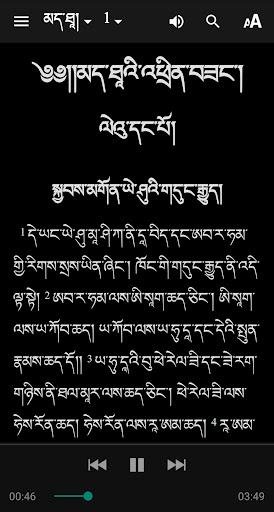 མད་ཐཱ། 1
༄༅།།མད་ཐཱའི་འཕྲིན་བཟང་།
ལེའུ་དང་པོ།
སྐྱབས་མགོན་ཡེ་ཤུའི་གདུང་རྒྱུད།
1 དེ་ཡང་ཡེ་ཤུ་མཱ་ཤི་ཀ་ནི་དཱ་བིད་དང་ཨབ་ར་ཧམ་
གྱི་རིགས་སྲས་ཡིན་ཞིང་། ཁོང་གི་གདུང་རྒྱུད་ནི་འདི་
ལྟ་སྟེ། 2 ཨབ་ར་ཧམ་ལས་ཨི་སཱག་ཆད་ཅིང་། ཨི་སཱག་
ལས་ཡ་ཀོབ་ཆད། ཡ་ཀོབ་ལས་ཡ་ཧུ་དཱ་དང་དེའི་སྤུན་
རྣམས་ཆད་དོ།། 3 ཡ་ཧུ་དཱའི་བུ་ཕེ་རེལ་ཟི་དང་ཟེ་རག་
གཉིས་ནི་ཐལ་མཱར་ལས་ཆད་ཅིང་། ཕེ་རེལ་ཟི་ལས་
ཧེས་རོན་ཆད། ཧེས་རོན་ལས་རཱ་ཨམ་ཆད། 4 རཱ་ཨམ་
00:46 03:49